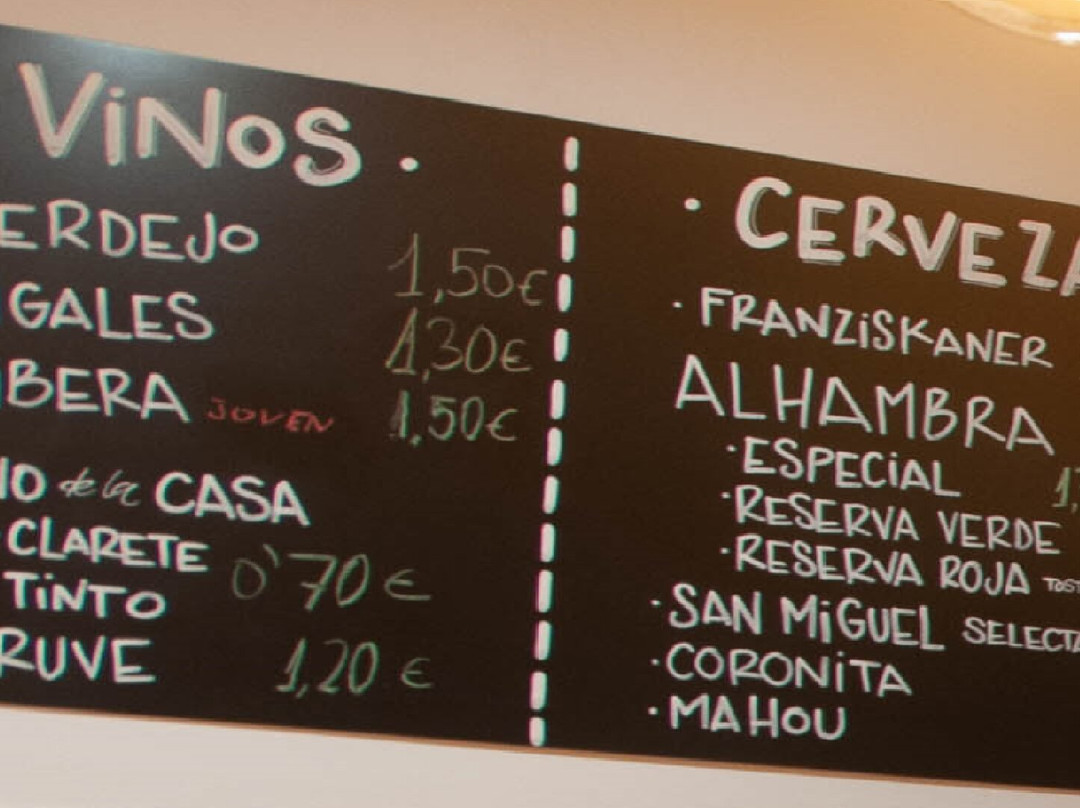 ViNOS .
ERDEJO 1,50€
GALES 1,30€
BERA JOVEN 1,50€
IO de la CASA
CLARETE
TiNTO 0'70 €
RUVE 1,20 €
· CERVEZA
· FRANZiSKANER
ALHAMBRA
· ESPECiAL
· RESERVA VERDE
· RESERVA ROJA TOST
· SAN MiGUEL SELECTA
· CORONiTA
· MAHOU